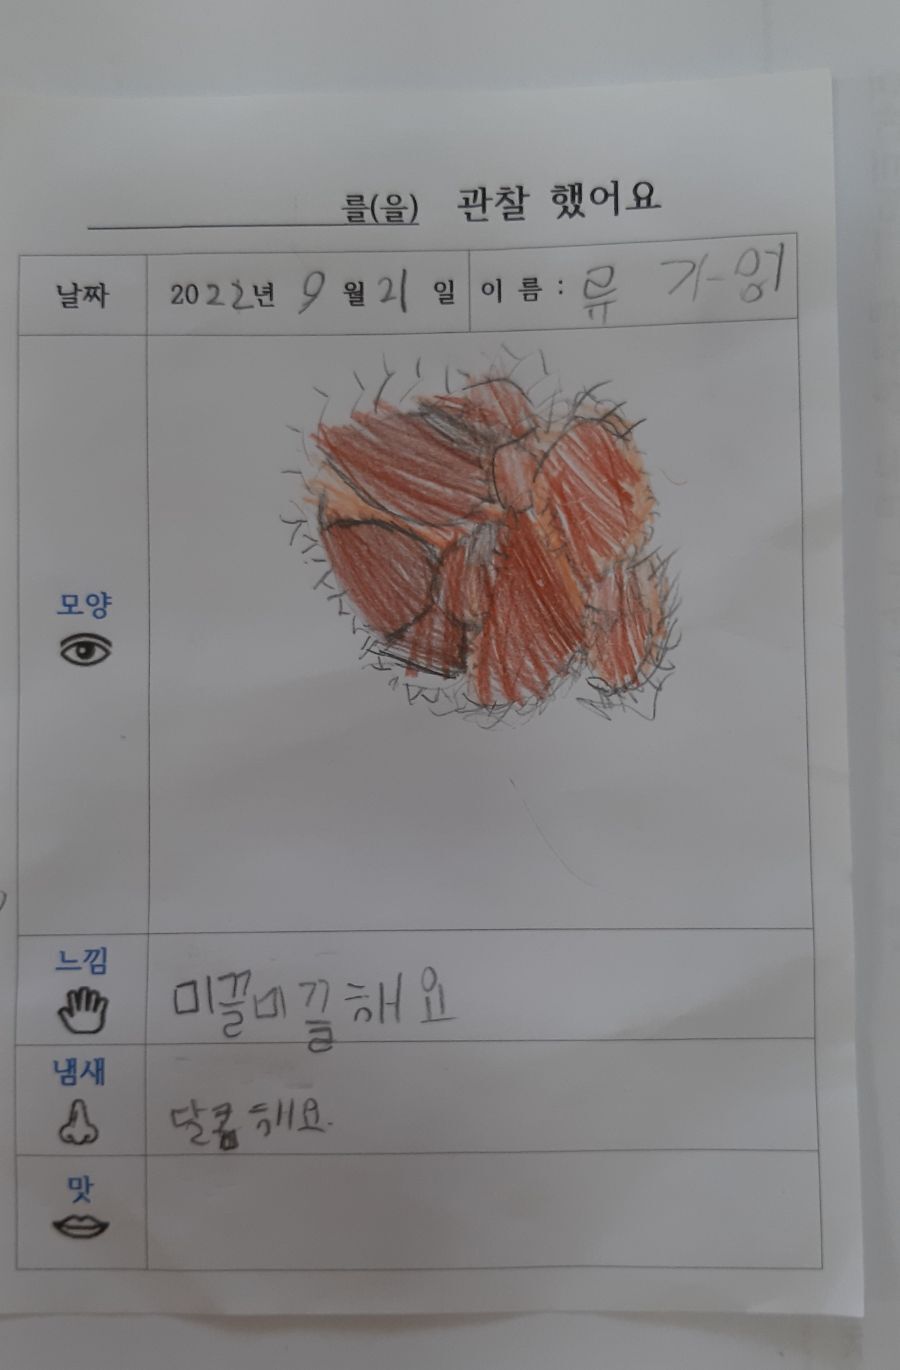 를(을) 관찰 했어요
날짜 2022년 9월 21일 이름 : 류
모양
느낌 미끌미끌해요
냄새 달콤해요.
맛